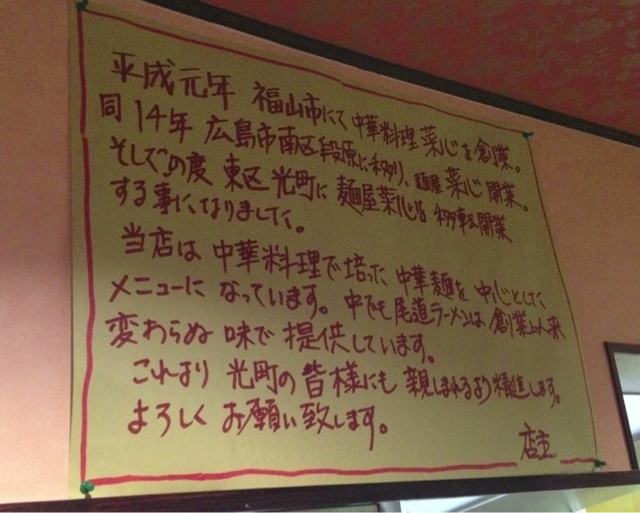 平成元年 福山市にて中華料理菜心を創業。
同14年 広島市南区段原に移り、麺屋 菜心 開業。
そしてこの度 東区光町に麺屋菜心を移転開業
する事になりました。
当店は中華料理で培った中華麺を中心とした
メニューになっています。中でも尾道ラーメンは創業以来
変わらぬ味で提供しています。
これより光町の皆様にも親しまれるより精進します。
よろしくお願い致します。
店主